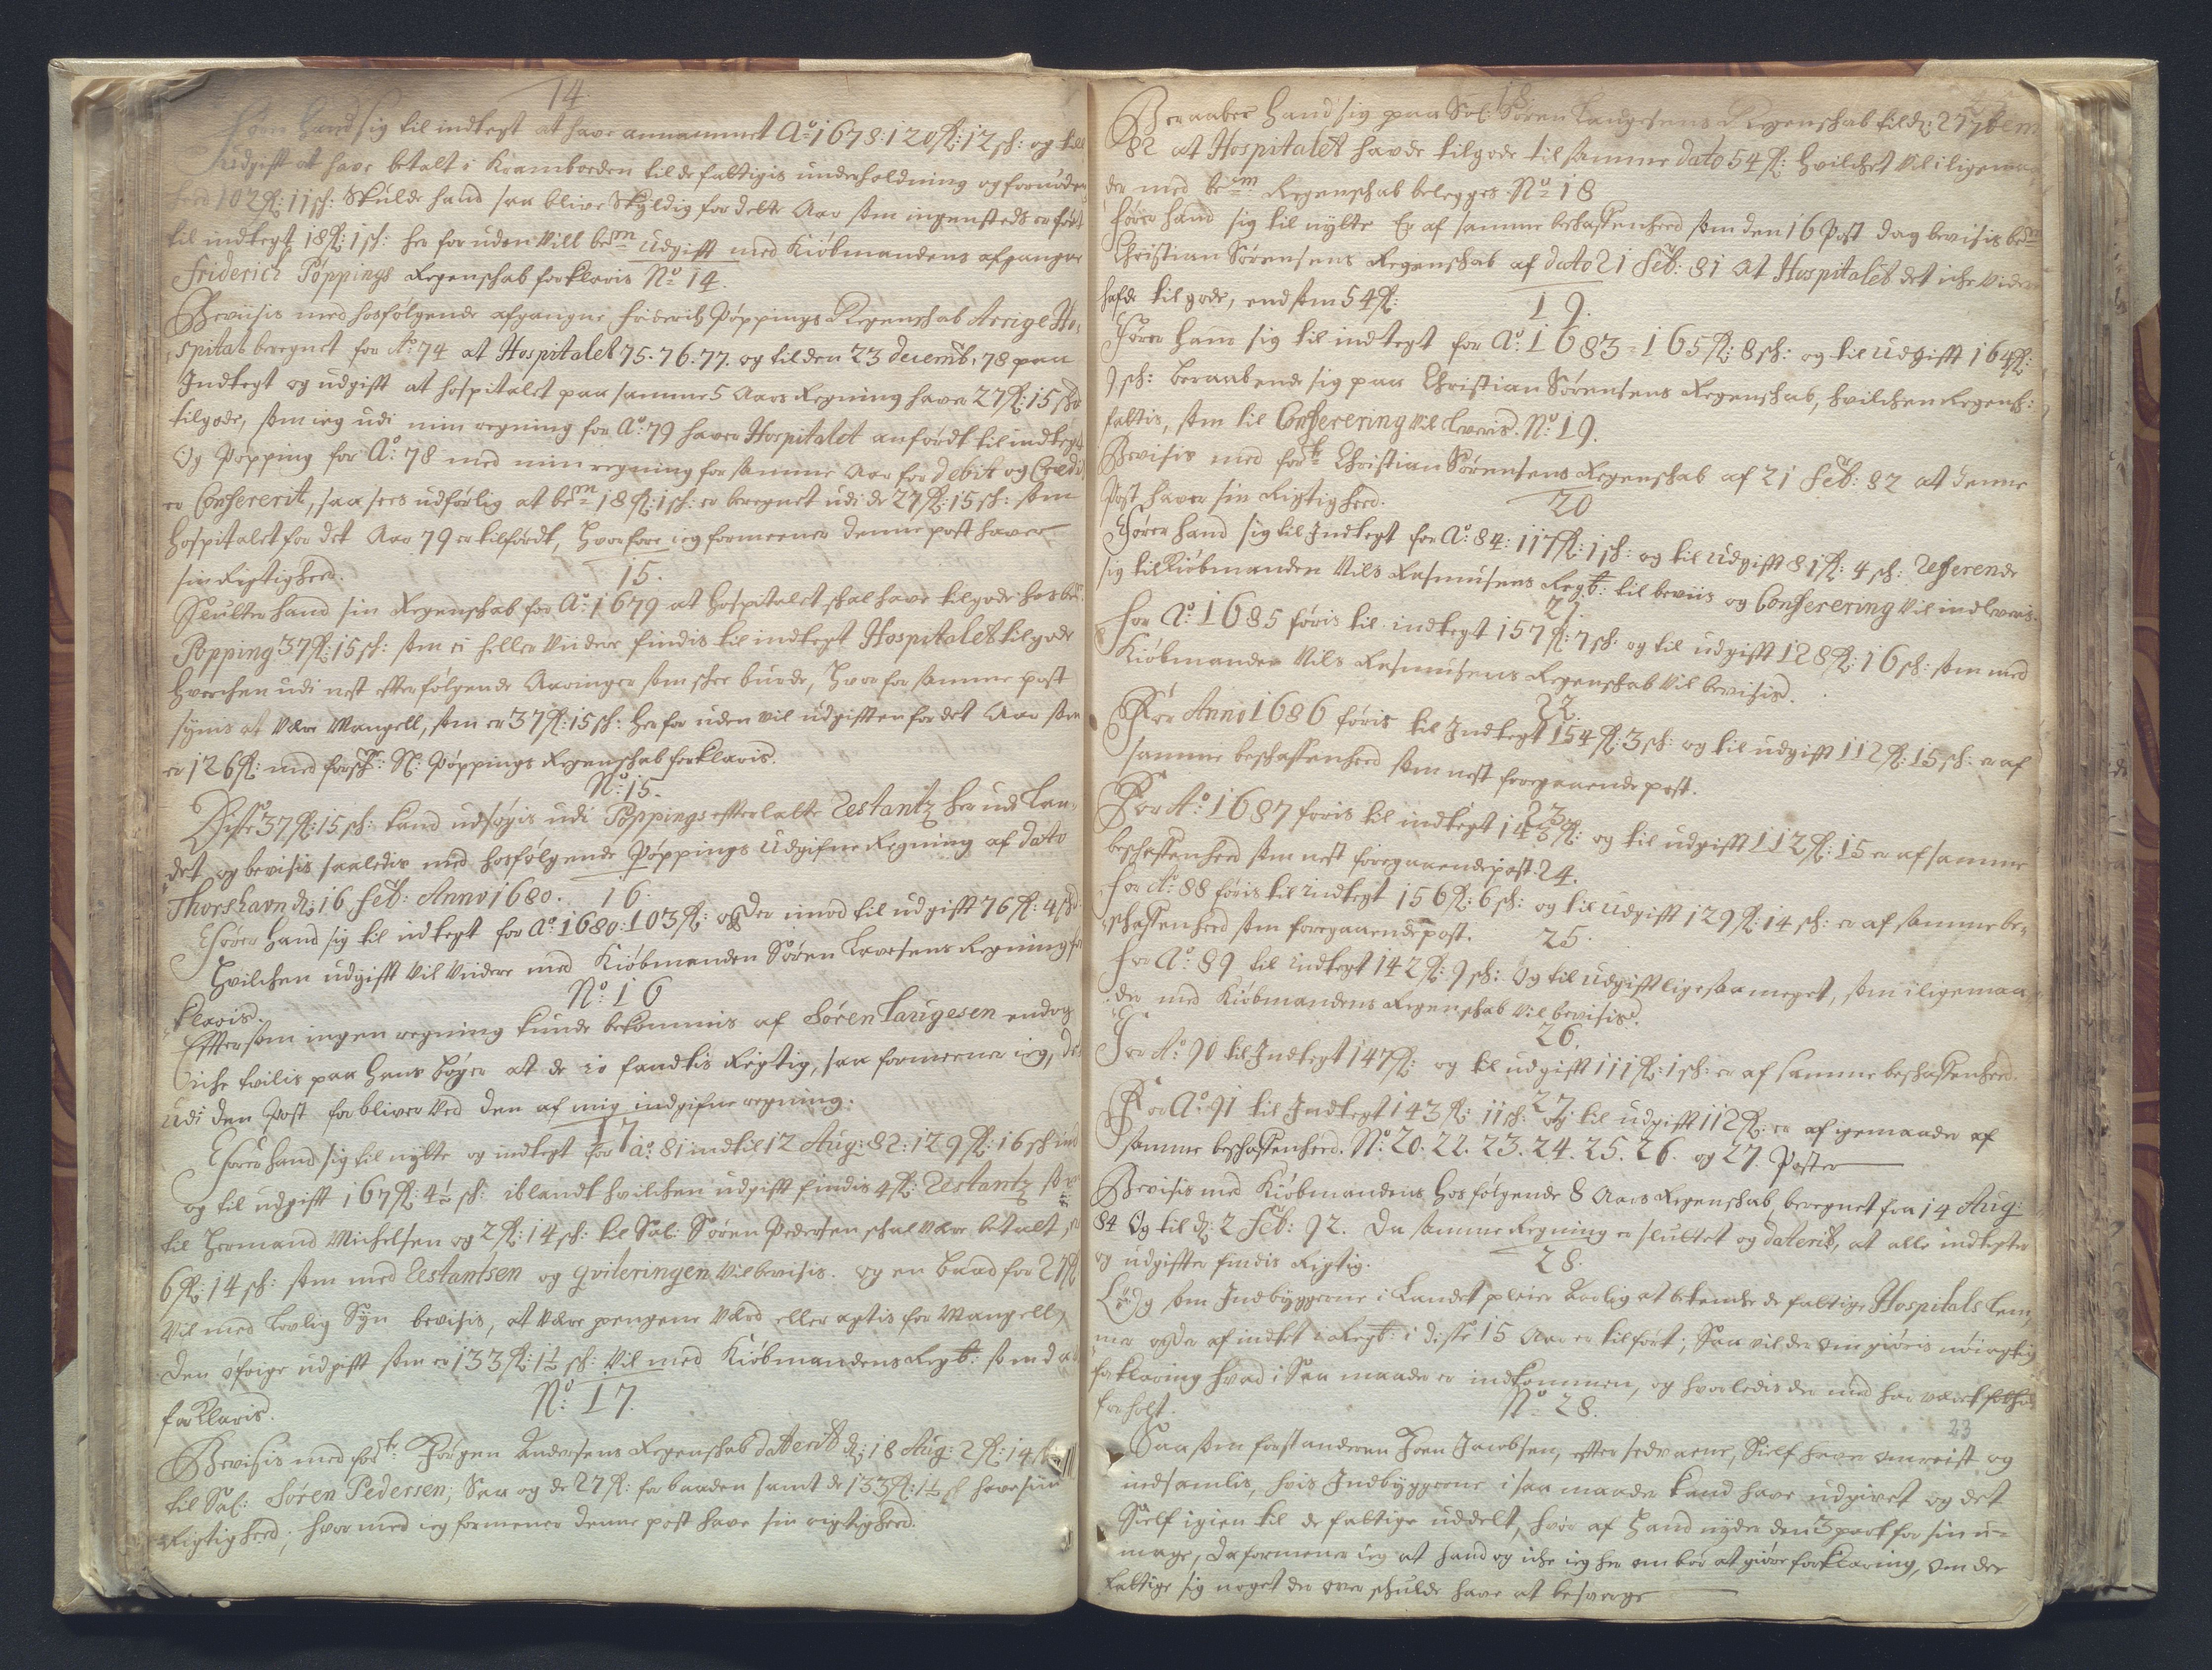 14.
Fører Hand sig til indtegt at have annammet Ao 1678: 120 R: 12 sch: og till
udgift at have betalt i Kramboeden til de fattigis underholdning og fornøden
heed 102 R: 11 sch: Skulde hand saa blive Skyldig for dette Aar som ingensteds er ført
til indtegt 18 R: 1 sch: her for uden vill bem: udgifft med Kiøbmandens afgangne
Friderich Pøppings Regenschab forklaris No 14.
Beviisis med hosfølgende afgangne Friderich Pøppings Regenschab Arrige Ho-
spital beregnet for Ao 74 at Hospitalet 75. 76. 77. og til den 23 decemb: 78 paa
Indtegt og udgift at hospitalet paa samme 5 Aars Regning haver 27 R: 15 sch
tilgode, som ieg udi min regning for Ao 79 haver Hospitalet anførdt til indtegt
Og Popping for Ao: 78 med min regning for samme Aar for debit og Credit
er Confererit, saa sees udførlig at bem 18 R: 1 sch: er beregnet udi de 27 R: 15 sch: som
Hospitalet for det Aar 79 er tilførdt, Hvorfore ieg formeener denne post haver
sin Rigtigheed.
15.
Slutter hand sin Regenschab for Ao: 1679 at Hospitalet schal have tilgode hos be
Popping 37 R: 15 sch: som ei heller viidere findis til indtegt Hospitalet tilgode
hverchen udi nest efterfølgende Aaringer som schee burde, Hvorfor samme post
synis at være Mangell, som er 37 R: 15 sch: her for uden vil udgifften for det Aar som
er 126 R: med forsch: Sl: Pøppings Regenschab forklaris.
No: 15.
Disse 37 R: 15 sch: kand udsøgis udi Pøppings efterlatte Restantz her udi Lan-
det og bevisis saaledis med hosfølgende Pøppings Udgifne Regning af dato
Thorshavn d: 16 Feb: Anno 1680.
16.
Fører Hand sig til indtegt for Ao. 1680: 103 R: og der imod til udgifft 76 R: 4 sch
Hvilchen udgifft vil viidere med Kiøbmanden Søren Lavesens Regning for
klaris.
No: 16
Efftersom ingen regning kunde bekommis af Søren Laugesen endog
iche tvilis paa hans bøger at de io fandtis Rigtig, saa formeener ieg, det
udi den Post forbliver ved den af mig indgifne regning.
17
Fører hand sig til nytte og indtegt for Ao: 81 indtil 12 Aug: 82: 129 R: 16 sch
og til udgifft 167 R: 4½ sch: iblandt hvilchen udgifft findis 4 R: Restantz som
til Hermand Michelsen og 2 R: 14 sch: til Sal: Søren Pedersen schal være betalt, er
6 R: 14 sch: som med Restantsen og qviteringen vil bevisis. og en baad for 27 R
Vil med Lovlig Syn bevisis, at være pengene værd eller agtis for Mangell,
Den øfrige udgifft som er 133 R: 1½ sch: vil med Kiøbmandens Regsk: som da
forklaris.
No: 17.
Bevisis med forbte: Jørgen Andersens Regenschab daterit d: 18 Aug: 2 R: 14
til Sal: Søren Pedersen; Saa og de 27 R: for baaden samt de 133 R: 1½ sch have siin
Rigtigheed; hvormed ieg formeener denne post have sin rigtigheed.
18
Beraaber Hand sig paa Sal: Søren Laugesens Regenschab til d: 27 bem
82 at Hospitalet havde tilgode til samme dato 54 R: hvilchet vil i ligemaa-
der med bem Regenschab belegges No 18
Fører hand sig til nytte Er af samme beschaffenheed som den 16 Post dog bevisis bem
Christian Sørensens Regenschab af dato 21 Feb: 81 At Hospitalet det iche vider
hafde tilgode, end som 54 R:
19.
Fører Hand sig til indtegt for Ao. 1683 = 165 R: 8 sch: og til Udgifft 164 R:
9 sch: beraabende sig paa Christian Sørensens Regenschab, hvilchen Regensch:
fattis, som til Conferering vil leveris. No: 19.
Bevisis med forte Christian Sørensens Regenschab af 21 Feb: 82 at denne
Post haver sin Rigtigheed.
20
Fører hand sig til Indtegt for Ao: 84: 117 R: 1 sch: og til udgifft 81 R: 4 sch: Referende
sig til Kiøbmanden Nils Rasmusens Regsk: til beviis og Conferering vil indleveris.
21
For Ao: 1685 føris til indtegt 157 R: 7 sch: og til udgifft 128 R: 16 sch: som med
Kiøbmanden Nils Rasmusens Regenschab vil bevisis.
22.
For Anno 1686 føris til Indtegt 154 R: 3 sch: og til udgifft 112 R: 15 sch: er af
samme beschaffenheed som nest foregaaende post.
23
For Ao: 1687 føris til indtegt 143 R: og til udgifft 112 R: 15 er af samme
beschaffenheed som nest foregaaende post.
24.
For Ao: 88 føris til indtegt 156 R: 6 sch: og til udgifft 129 R: 14 sch: er af samme be-
schaffenheed som foregaaende post.
25.
For Ao: 89 til indtegt 142 R: 9 sch: Og til udgifft ligesaa meget, som i ligemaa-
der med Kiøbmandens Regenschab vil bevisis.
26.
For Ao 90 til Indtegt 147 R: og til udgifft 111 R: 1 sch: er af samme beschaffenheed.
27
For Ao: 91 til Indtegt 143 R: 11 sch: og til udgifft 112 R: er af igemaader af
samme beschaffenheed. No: 20. 22. 23. 24. 25. 26. og 27. Poster
Bevisis med Kiøbmandens hosfølgende 8 Aars Regenschab beregnet fra 14 Aug:
84 Og til d: 2 Feb: 92. Da samme Regning er sluttet og daterit, at alle indtegter
og udgiffter findis Rigtig.
28.
som Indbyggerne i Landet pleier Aarlig at betenche de fattige Hospitals Lem-
mer og der af intet i Regsk: i disse 15 Aar er tilført; Saa vil der om giøris nøiagtig
forklaring hvad i Saa maade er indkommen, og hvorledis der med har været
forholt.
No 28.
23
Saasom forstanderen Joen Jacobsen, efter sedvaene, Sielf haver omreist og
indsamlis, hvis Indbyggerne i saa maader kand have udgivet og det
Sielf igien til de fattige uddelt, hvor af Hand nyder den 3 part for sin u-
mage, da formener ieg at hand og iche ieg her om bør at giøre forklaring, om de
fattige sig noget der over schulde have at besverge